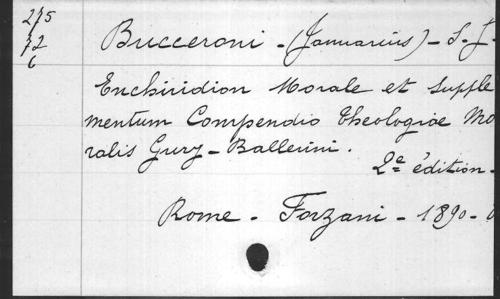 275
72
6
Bucceroni - (Januarius) - S. J.
Enchiridion Morale et Supple
mentum Compendio Theologiae Mo
ralis Gury - Ballerini.
2e édition -
Rome - Forzani - 1890 -